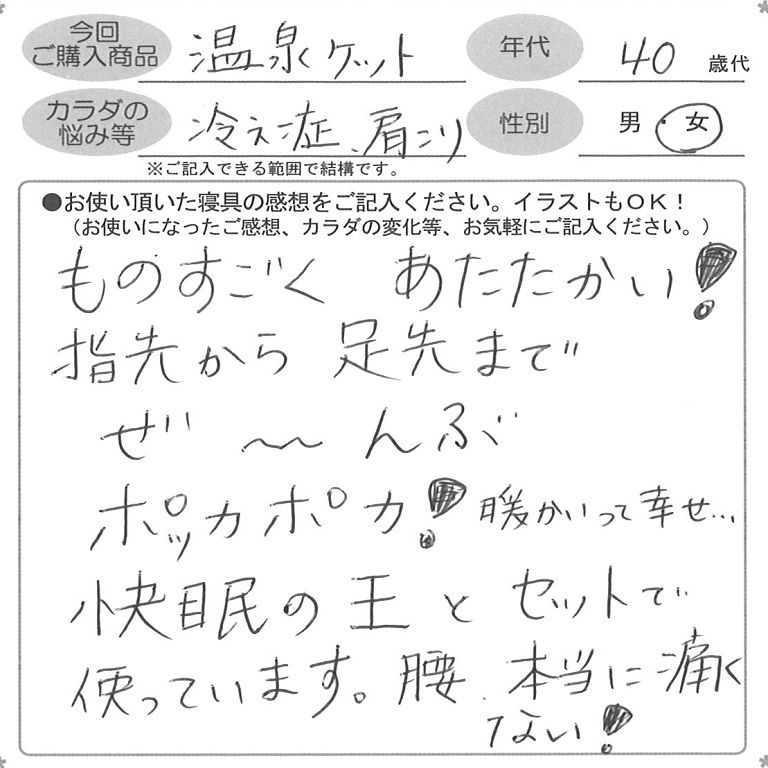 今回ご購入商品 温泉ケット 年代 40 歳代
カラダの悩み等 冷え症、肩こり 性別 男・女
※ご記入できる範囲で結構です。
●お使い頂いた寝具の感想をご記入ください。イラストもOK！
（お使いになったご感想、カラダの変化等、お気軽にご記入ください。）
ものすごく あたたかい！
指先から 足先まで
ぜ〜〜んぶ
ポッカポカ！ 暖かいって幸せ…
快眠の王とセットで
使っています。腰、本当に痛く
ない！